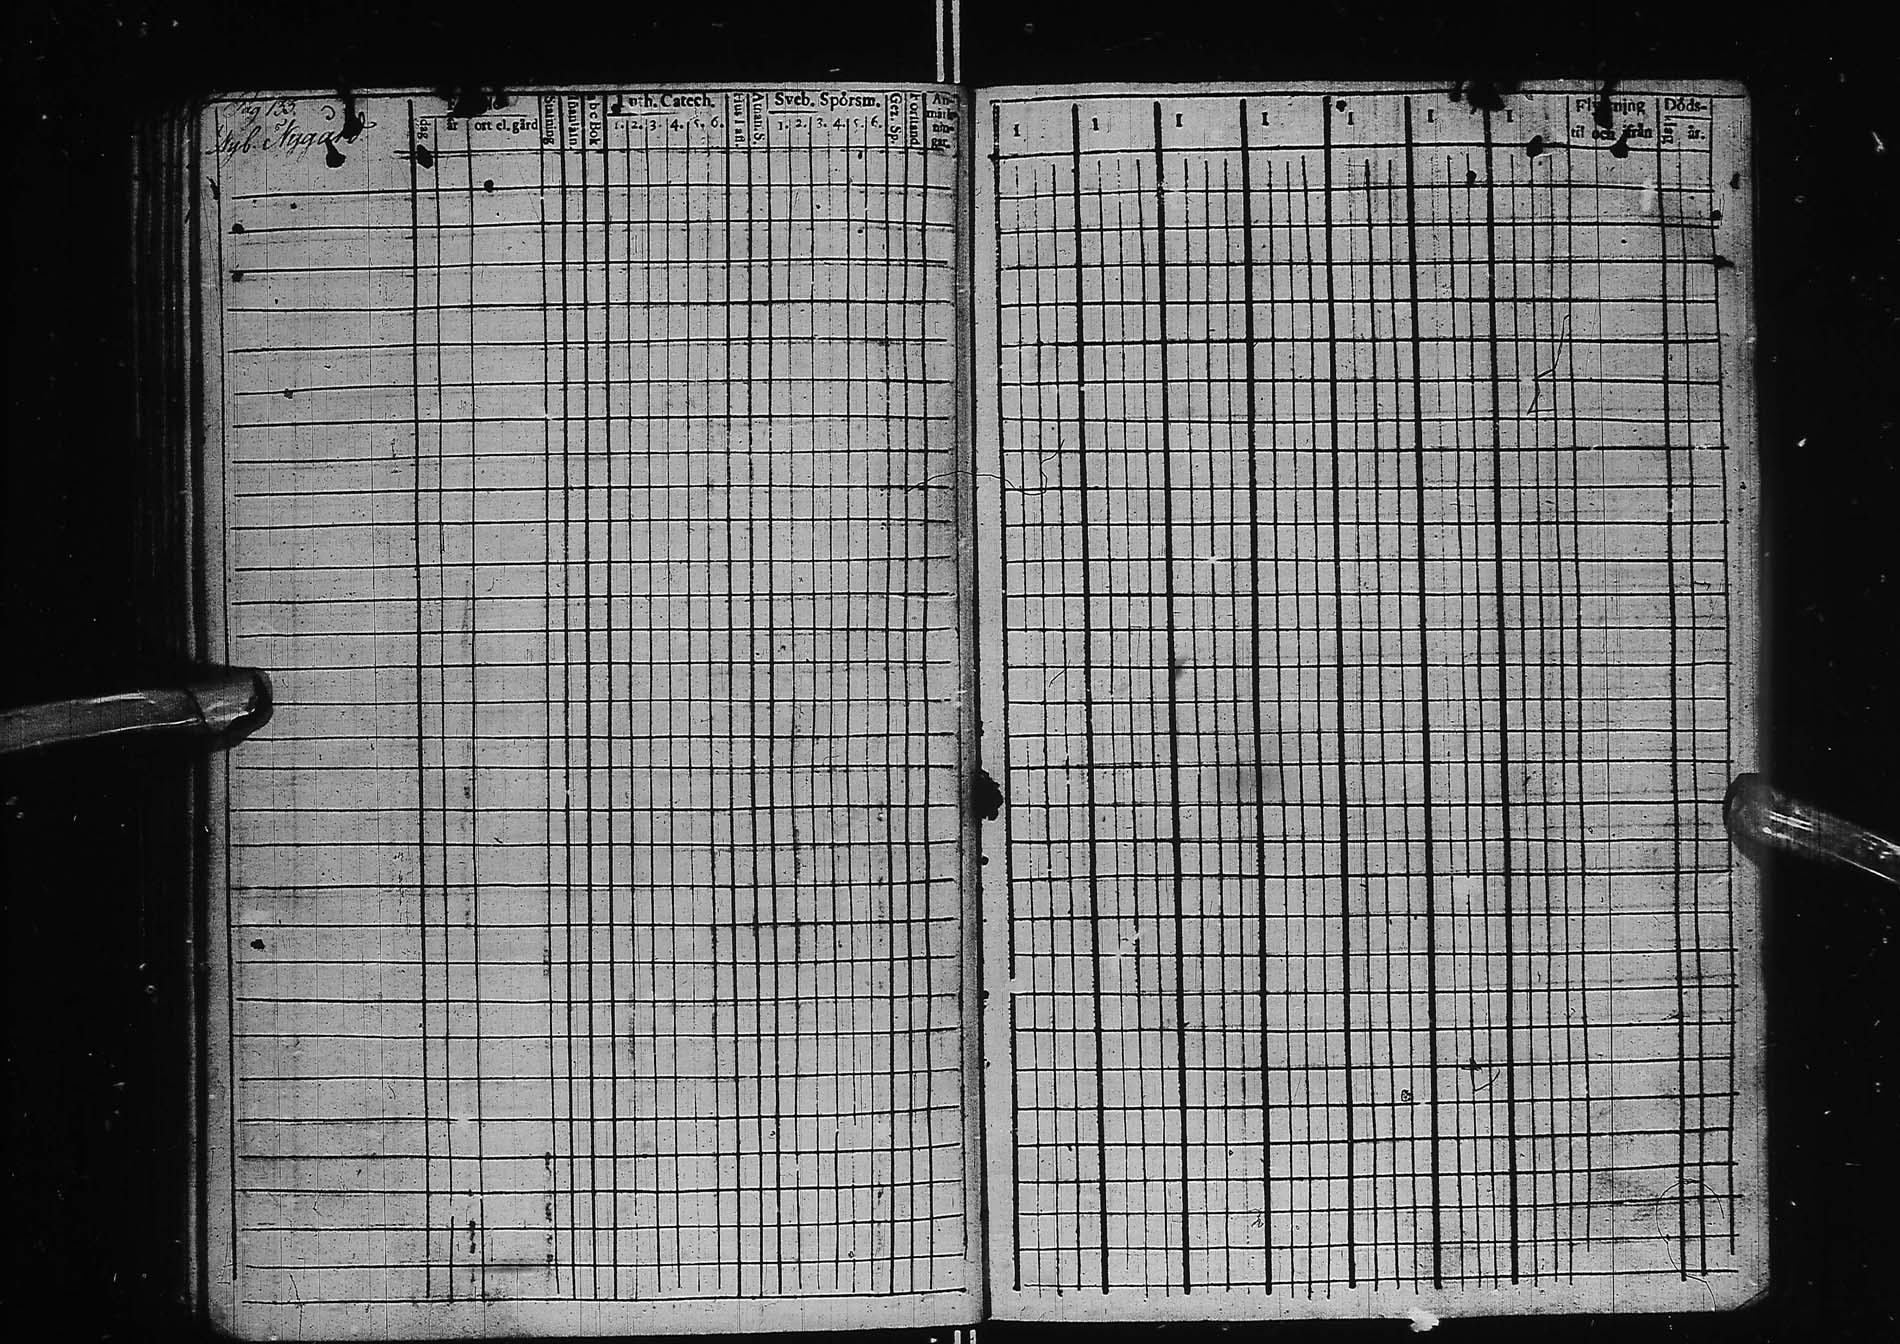 Pag 133.
Nyb. Nygård
dag
år
ort el. gård
Innanläsn
abc Bok
Luth. Catech.
1. 2. 3. 4. 5. 6.
Hus Tafl.
Athan. S.
Sveb. Spörsm.
1. 2. 3. 4. 5. 6.
Gez. Sp.
Förstånd
An-
märk-
nin-
gar.
1 1 1 1 1 1 1
Flyttning
til och ifrån
Döds-
dag
år.